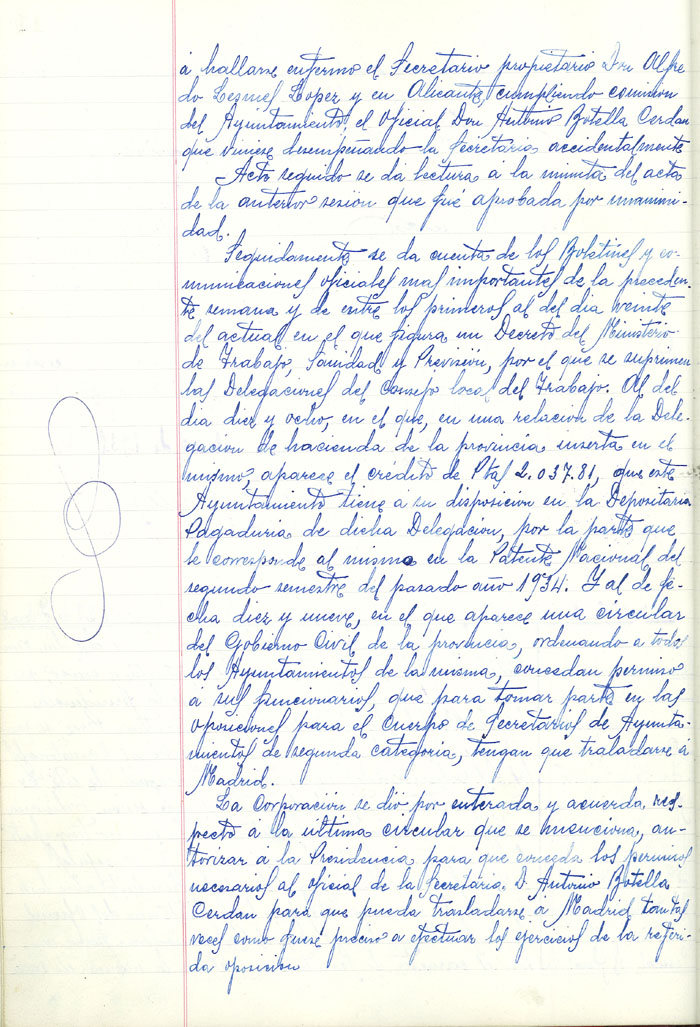 á hallarse enfermo el Secretario propietario Don Alfre
do Lesmes Lopez y en Alicante, cumpliendo comision
del Ayuntamiento, el Oficial Don Antonio Botella Cerdan
que viniese desempeñando la Secretaria accidentalmente
Acto seguido se da lectura a la minuta del acta
de la anterior sesión que fué aprobada por unanimi-
dad.
Seguidamente se da cuenta de los Boletines y co-
municaciones oficiales mas importantes de la preceden-
te semana y de entre los primeros al del dia veinte
del actual en el que figura un Decreto del Ministerio
de Trabajo, Sanidad y Previsión, por el que se suprimen
las Delegaciones del Consejo local del Trabajo. Al del
dia diez y ocho, en el que, en una relación de la Dele-
gación de hacienda de la provincia inserta en el
mismo, aparece el crédito de Ptas 2.037.81, que este
Ayuntamiento tiene á su disposicion en la Depositaria
Pagaduria de dicha Delegación, por la parte que
le corresponde al mismo en la Patente Nacional del
segundo semestre del pasado año 1934. Y al de fe-
cha diez y nueve, en el que aparece una circular
del Gobierno Civil de la provincia, ordenando a todos
los Ayuntamientos de la misma, concedan permiso
á sus funcionarios, que para tomar parte en las
oposiciones para el Cuerpo de Secretarios de Ayunta-
mientos de segunda categoria, tengan que traladarse á
Madrid.
La Corporación se dió por enterada y acuerda, res-
pecto á la última circular que se menciona, au-
torizar á la Presidencia para que conceda los permisos
necesarios al oficial de la Secretaria D. Antonio Botella
Cerdan para que pueda trasladarse á Madrid tantas
veces como fuese preciso a efectuar los ejercicios de la referi-
da oposicion